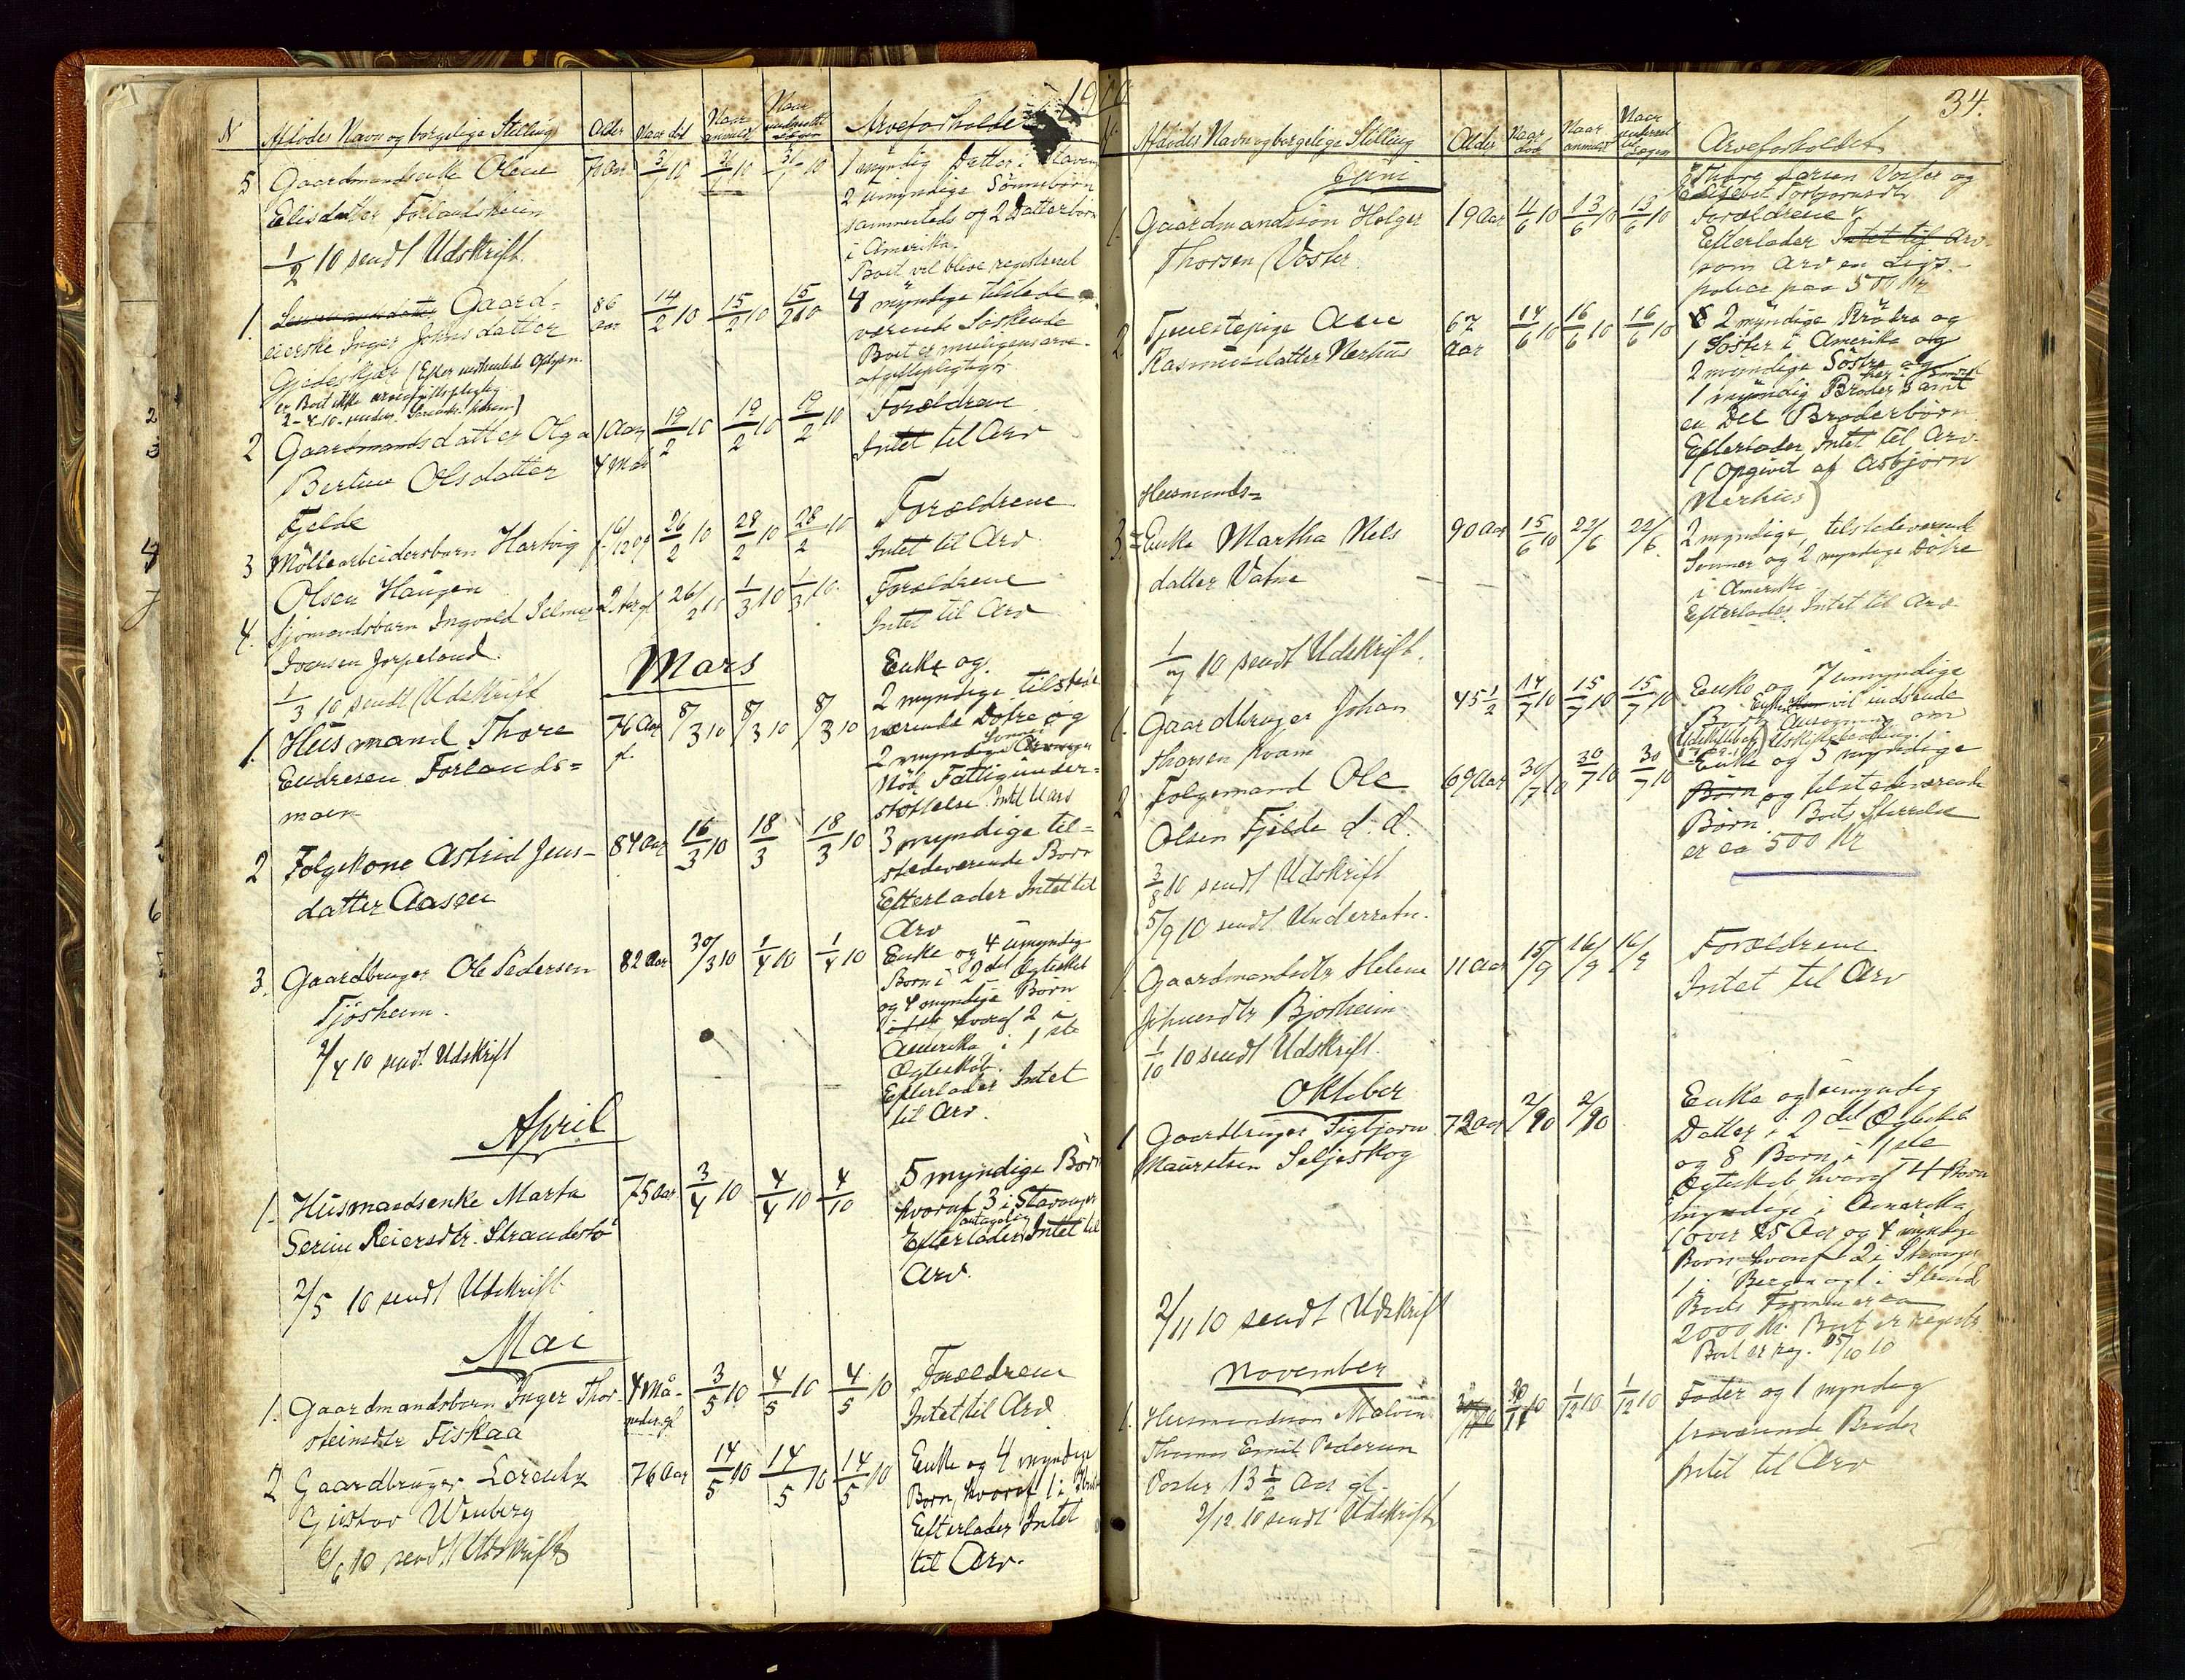 1910
34.
N Afdødes Navn og borgelige Stilling Alder Naar død Naar anmeldt Arveforholdet
5 Gaardmandsenke Olene 1 myndig Datter i
Elisdatter Forlandsheim 2 umyndige Sönnebörn
sammesteds og 2 Datterbörn
i Amerika.
1/2 10 sendt Udskrift Boet vil blive registreret
1. Gaard- 86 14/2 10 15/2 10 15/2 10 4 myndige tilstede
eierske Inger Johnsdatter aar værende Söskende
Boet er muligens arve-
afgiftspligtigt
er Boet ikke
2 Gaardmandsdatter Olga 1 Aar 19/2 10 19/2 10 19/2 10 Forældrene
Bertine Olsdatter 4 Mdr Intet til Arv
Fjelde
3 Möllearbeidersbarn Hartvig 26/2 10 28/2 10 28/2 10 Forældrene
Olsen Haugen Intet til Arv
4. Sjömandsbarn Ingvald Selmer 26/2 10 1/3 10 1/3 10 Forældrene
Iversen Jørpeland. Intet til Arv
1/3 10 sendt Udskrift
Mars
1. Husmand Thore 76 Aar 8/3 10 8/3 10 8/3 10 Enke og
Endresen Forlands= gl. 2 myndige tilstede
moen værende Døtre og
2 myndige Sønner
Fattigunder-
støttelse. Intet til Arv
2 Folgekone Astrid Jens- 84 Aar 16/3 10 18/3 18/3 10 3 myndige til-
datter Aasen stedeværende Børn
Efterlader Intet til
Arv
3. Gaardbruger Ole Pedersen 82 Aar 30/3 10 1/4 10 1/4 10 Enke og 4 umyndige
Tjösheim. Børn i 2det Ægteskab
og 4 myndige Børn
hvoraf 2 i
2/4 10 sendt Udskrift Amerika i 1ste
Ægteskab.
Efterlader Intet
til Arv.
April
1. Husmandsenke Marta 75 Aar 3/4 10 4/4 10 4/10 5 myndige Børn
Serine Reiersdtr. Strandestö hvoraf 3 i Stavanger
Efterlader antagelig Intet til
Arv.
2/5 10 sendt Udskrift
Mai
1. Gaardmandsbarn Inger Thor- 4 Må- 3/5 10 4/5 10 4/5 10 Forældrene
steinsdtr Fiskaa neder gl Intet til Arv
2 Gaardbruger Lorentz 76 Aar 14/5 10 14/5 10 14/5 10 Enke og 4 myndige
Gustav Wenberg Børn, hvoraf 1 i
Efterlader Intet
6/6 10 sendt Udskrift til Arv.
Afdødes Navn og borgelige Stilling Alder Naar død Naar anmeldt Arveforholdet
Juni
1. Gaardmandssön Holger 19 Aar 4/6 10 13/6 10 13/6 10 Thore Larsen Voster og
Thorsen Voster Elisebet Torbjørnsdtr
Forældrene
Efterlader Intet til Arv
som Arv en Livs-
police paa 500 Kr
2 Tjenestepige Ane 67 14/6 10 16/6 10 16/6 10 2 myndige Brødre og
Rasmusdatter Nerhus Aar 1 Søster i Amerika og
2 myndige Søstre og
1 myndig Broder her samt
en Del Broderbörn
Efterlader Intet til Arv.
(Opgivet af Asbjörn
Nerhus)
Husmands=
3. Enke Martha Nils 90 Aar 15/6 10 22/6 22/6. 2 myndige tilstedeværende
datter Vatne Sønner og 2 myndige Døtre
i Amerika
Efterlader Intet til Arv
1/7 10 sendt Udskrift.
1. Gaardbruger Johan 45 1/2 14/7 10 15/7 10 15/7 10 Enke og 7 umyndige
Thorsen Kvam Børn Enken vil indsende
Ansøgning om
2 Folgemand Ole 69 Aar 30/7 10 30/7 10 30/7 10 Enke og 5 myndige
Olsen Fjelde d. d. Børn og tilstedeværende
Børn. Boets Størrelse
er ca 500 Kr
3/8 10 sendt Udskrift
5/9 10 sendt Underretn.
1. Gaardmandsdtr Helene 11 Aar 15/9 16/9 16/9 Forældrene
Bjorheim Intet til Arv
1/10 10 sendt Udskrift.
Oktober
1 Gaardbruger Sigbjørn 72 Aar 2/9 0 2/9 0 Enke og 1 umyndig
Mauritsen Seljeskog Datter i 2det Ægteskab
og 8 Børn i 1ste
Ægteskab hvoraf 4 Børn
myndige i Amerika
over 25 Aar og 4 myndige
Børn hvoraf 2 i Stavanger
1 i Bergen og 1 i Strand
Boets Formue ca
2/11 10 sendt Udskrift 2000 Kr. Boet er registr.
Boet er reg. 25/10 10
November
1. Husmandssøn Malvin 30/11 10 1/12 10 1/12 10 Fader og 1 myndig
Thomas Emil Pedersen fraværende Broder
Voster 13 1/2 Aar gl. Intet til Arv
2/12 10 sendt Udskrift